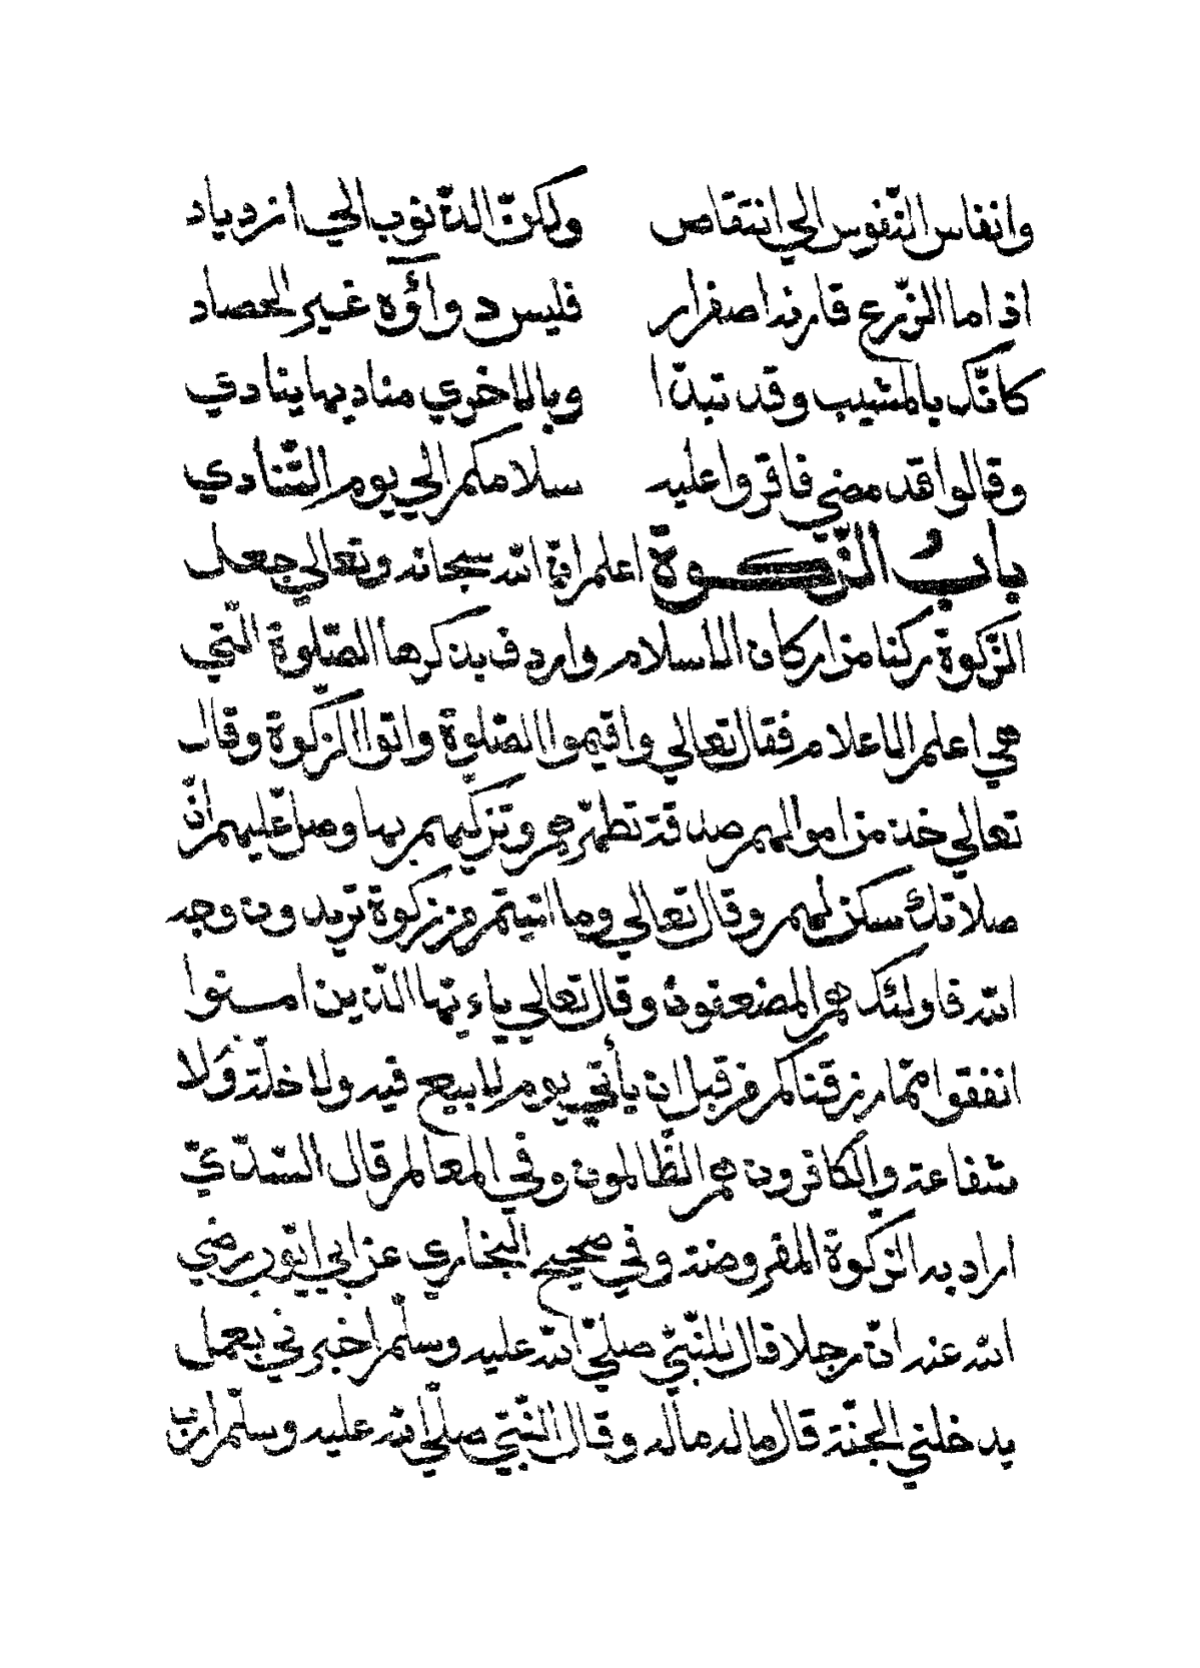 وانفاس النّفوس الي انتقاص ولكنّ الذنوب الي ازدياد
اذا ما الزّرع قارنه اصفرار فليس دوآؤه غير الحصاد
كانّك بالمشيب وقد تبدّا وبالاخري مناديها ينادي
وقالوا قد مضي فاقروا عليه سلامكم الي يوم التّنادي
باب الزّكوة اعلم انّ الله سبحانه وتعالي جعل
الزّكوة ركنا من اركان الاسلام واردف بذكرها الصّلوة الّتي
هي اعلم الاعلام فقال تعالي واقيموا الصّلوة واتوا الزّكوة وقال
تعالي خذ من اموالهم صدقة تطهّرهم وتزكّيهم بها وصلّ عليهم انّ
صلاتك سكن لهم وقال تعالي وما اتيتم من زكوة تريدون وجه
الله فاولئك هم المضعفون وقال تعالي ياءيّها الّذين امنوا
انفقوا ممّا رزقناكم من قبل ان يأتي يوم لا بيع فيه ولا خلّة ولا
شفاعة والكافرون هم الظّالمون وفي المعالم قال السّدّيّ
اراد به الزّكوة المفروضة وفي صحيح البخاري عن ابي ايّوب رضي
الله عنه انّ رجلا قال للنّبيّ صلّي الله عليه وسلّم اخبرني بعمل
يدخلني الجنّة قال ماله ماله وقال النّبيّ صلّي الله عليه وسلّم ارب